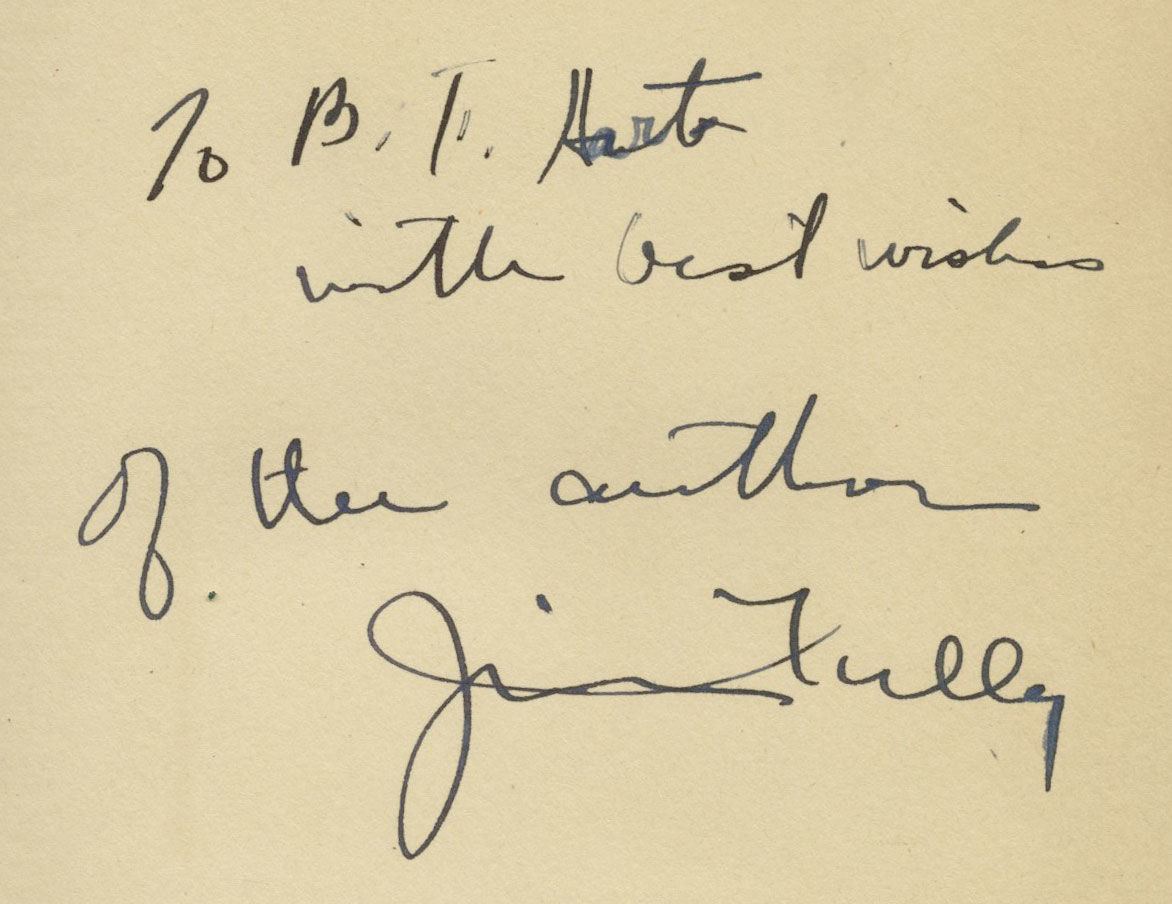 To B. F. Harte
with best wishes
of the author
Jim Tully